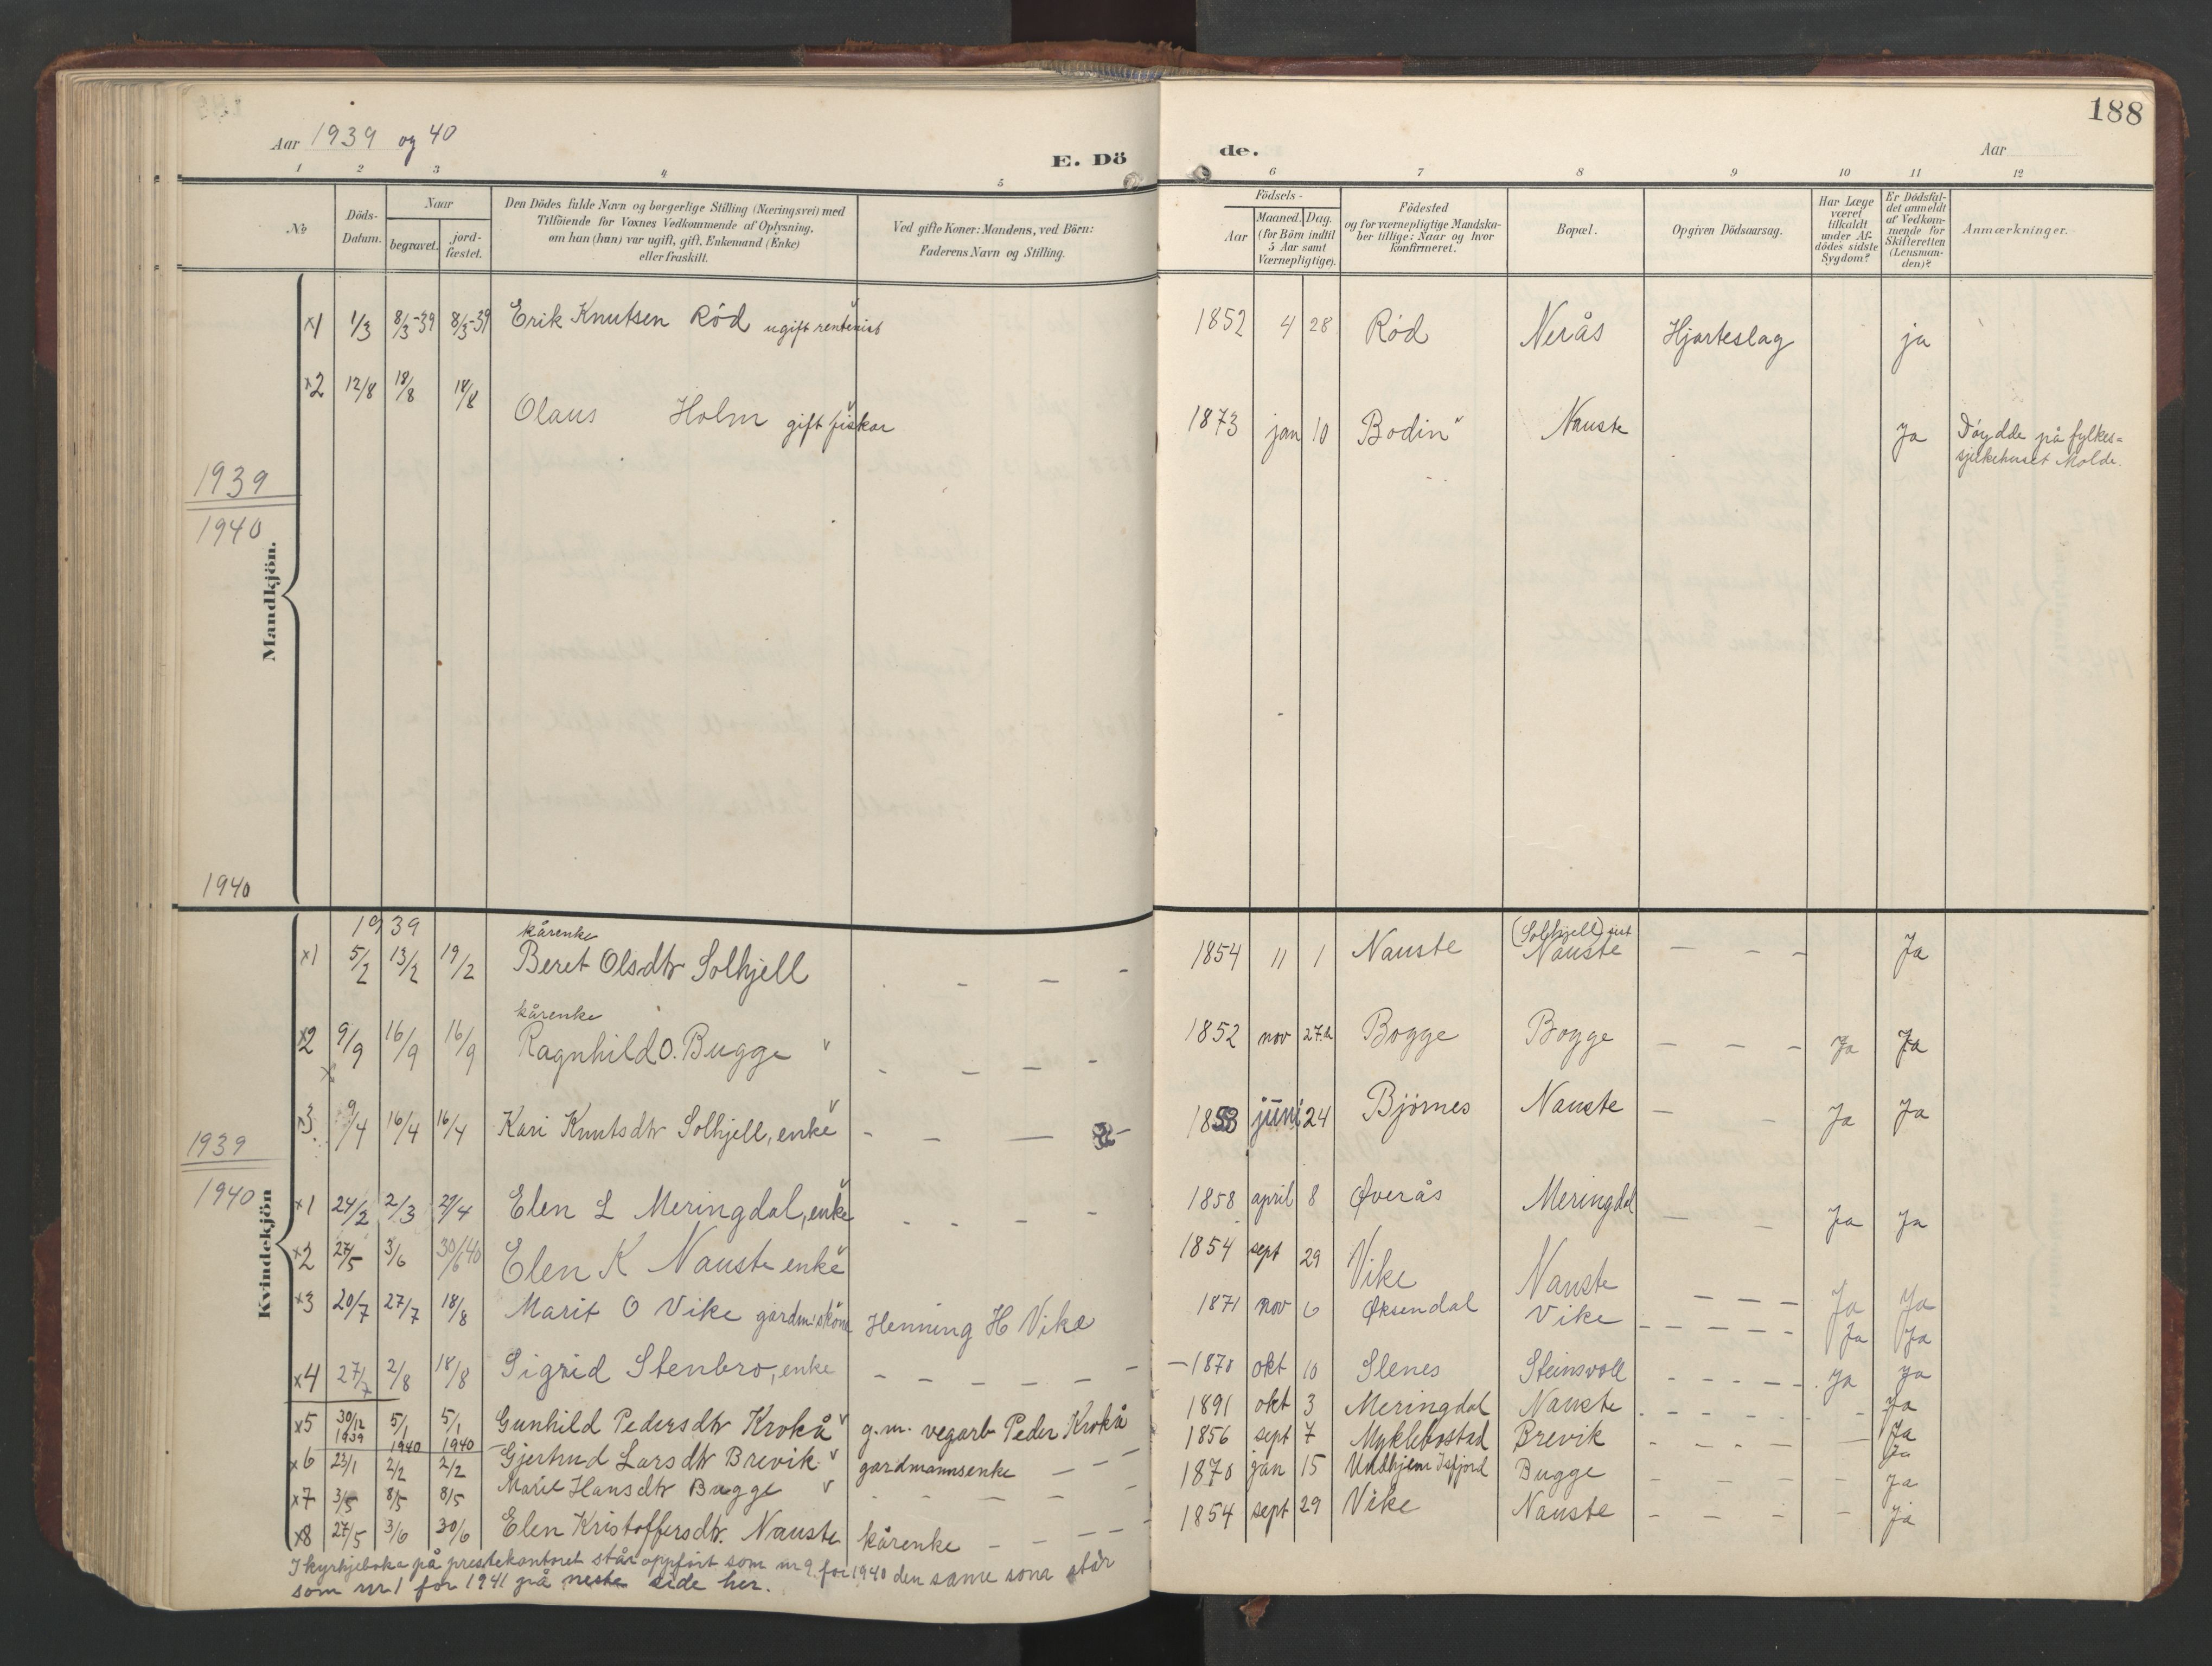 188
Aar 1939 og 40
E. Dö
de.
Aar
1 2 3 4 5 6 7 8 9 10 11 12
No
Döds-
Datum.
Naar
begravet.
jord-
fæstet.
Den Dödes fulde Navn og borgerlige Stilling (Næringsvei) med
Tilföiende for Voxnes Vedkommende af Oplysning,
om han (hun) var ugift, gift, Enkemand (Enke)
eller fraskilt.
Ved gifte Koner: Mandens, ved Börn:
Faderens Navn og Stilling.
Födsels-
Aar
Maaned. Dag.
(for Börn indtil
5 Aar samt
Værnepligtige).
Födested
og for værnepligtige Mandska-
ber tillige: Naar og hvor
konfirmeret.
Bopæl.
Opgiven Dödsaarsag.
Har Læge
været
tilkaldt
under Af-
dödes sidste
Sygdom?
Er Dödsfal-
det anmeldt
af Vedkom-
mende for
Skifteretten
(Lensman-
den)?
Anmærkninger.
x1 1/3 8/3-39 8/3-39 Erik Knutsen Rød ugift rentenist 1852 4 28 Rød Nerås Hjarteslag ja
x2 12/8 18/8 18/8 Olaus Holm gift fiskar 1873 jan 10 Bodin Nauste Ja Døydde på fylkes=
sjukehuset Molde.
1939
1940
Mandkjön.
1940
1939
kårenke (Solhjell)
x1 5/2 13/2 19/2 Beret Olsdtr Solhjell - - - 1854 11 1 Nauste Nauste - - - Ja
kårenke
x2 9/9 16/9 16/9 Ragnhild O. Bugge - - - - 1852 nov 27 Bogge Bogge - - - Ja Ja
x3 9/4 16/4 16/4 Kari Knutsdtr Solhjell, enke - - - - 1853 juni 24 Bjørnes Nauste - - Ja Ja
1939
1940
Kvindekjön
x1 24/2 2/3 29/4 Elen L Meringdal, enke - - - - 1858 april 8 Øverås Meringdal - - Ja Ja
x2 27/5 3/6 30/6 40 Elen K Nauste enke 1854 sept 29 Vike Nauste - - - - Ja Ja
x3 20/7 27/7 18/8 Marit O Vike gardm.skona Henning H Vike 1871 nov 6 Øksendal Vike - - - - - Ja Ja
x4 27/7 2/8 18/8 Sigrid Stenbro, enke - - - - - - 1870 okt 10 Slenes Steinsvoll - - - - - Ja Ja
x5 30/12 1939 5/1 1940 5/1 1940 Gunhild Pedersdtr Krokå g.m. vegarb Peder Krokå 1891 okt 3 Meringdal Nauste - - - - - Ja
x6 23/1 2/2 2/2 Gjertrud Larsdtr Brevik gardmannsenke - - - 1856 sept 7 Myklebostad Brevik - - - - - Ja
x7 3/5 8/5 8/5 Marie Hansdtr Bugge - - - - - 1870 jan 15 Undhjem Isfjord Bugge - - - - Ja
x8 27/5 3/6 30/6 Elen Kristoffersdtr. Nauste kårenke - - - - 1854 sept 29 Vike Nauste - - - - Ja
I kyrkjeboka på prestekontoret står oppført som nr 9 for 1940 den same som står
som nr 1 for 1941 på neste side her.